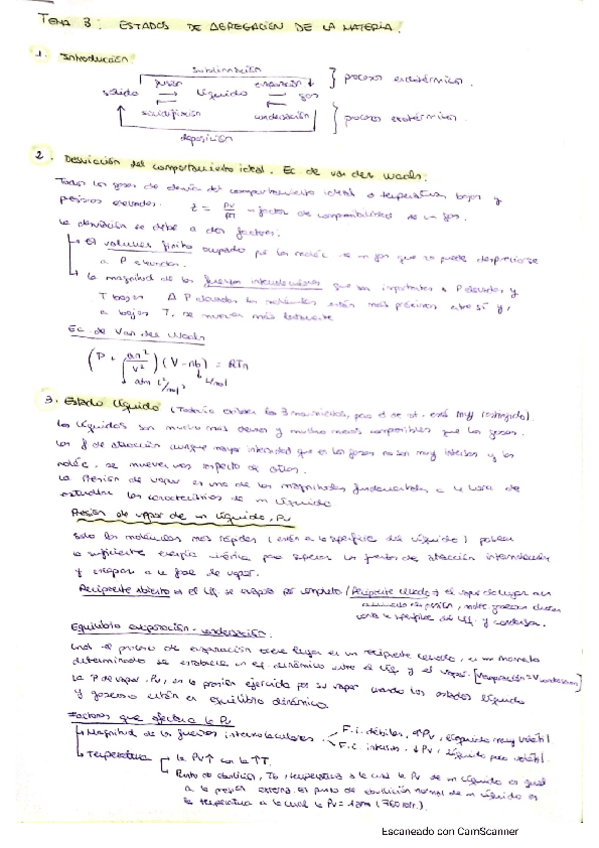 TEMA 3: ESTADOS DE AGREGACIÓN DE LA MATERIA.
1. Introducción:
sublimación
fusión evaporación } procesos endotérmicos.
sólido líquido gas
solidificación condensación } procesos exotérmicos.
deposición
2. Desviación del comportamiento ideal. Ec de van der Waals:
Todos los gases se desvían del comportamiento ideal a temperaturas bajas y
presiones elevadas. Z = PV/RT → factor de compresibilidad de un gas.
La desviación se debe a dos factores:
El volumen finito ocupado por las moléc. de un gas que no puede despreciarse
a P elevadas.
La magnitud de las fuerzas intermoleculares que son importantes a P elevadas y
T bajas. A P elevadas las moléculas están más próximas entre sí y,
a bajas T, se mueven más lentamente
Ec. de Van der Waals
(P + an²/V²)(V - nb) = RTn
atm L²/mol² L/mol
3. Estado líquido (Todavía existen los 3 movimientos, pero el de está muy restringido).
Los líquidos son mucho más densos y mucho menos compresibles que los gases.
Las f de atracción aunque mayor intensidad que en los gases no son muy intensas y las
moléc. se mueven unas respecto de otras.
La Presión de vapor es una de las magnitudes fundamentales a la hora de
estudiar las características de un líquido
Presión de vapor de un líquido, Pv
Solo las moléculas más rápidas (están en la superficie del líquido) poseen
la suficiente energía cinética para superar las fuerzas de atracción intermolecular
y escapar a la fase de vapor.
Recipiente abierto → el líq. se evapora por completo / Recipiente cerrado → el vapor
con la superficie del líq. y condensar.
Equilibrio evaporación-condensación.
Cuando el proceso de evaporación tiene lugar en un recipiente cerrado, en un momento
determinado se establece un eq. dinámico entre el líq y el vapor. [Vevaporación = Vcondensación]
La P de vapor, Pv, es la presión ejercida por su vapor cuando los estados líquido
y gaseoso están en equilibrio dinámico.
Factores que afectan a la Pv
Magnitud de las fuerzas intermoleculares F.i. débiles, ↑Pv, líquido muy volátil.
F.i. intensas, ↓Pv, líquido poco volátil.
Temperatura La Pv↑ con la ↑T.
Punto de ebullición, Tb, temperatura a la cual la Pv de un líquido es igual
a la presión externa. El punto de ebullición normal de un líquido es
la temperatura a la cual la Pv = 1 atm (760 torr).
Escaneado con CamScanner